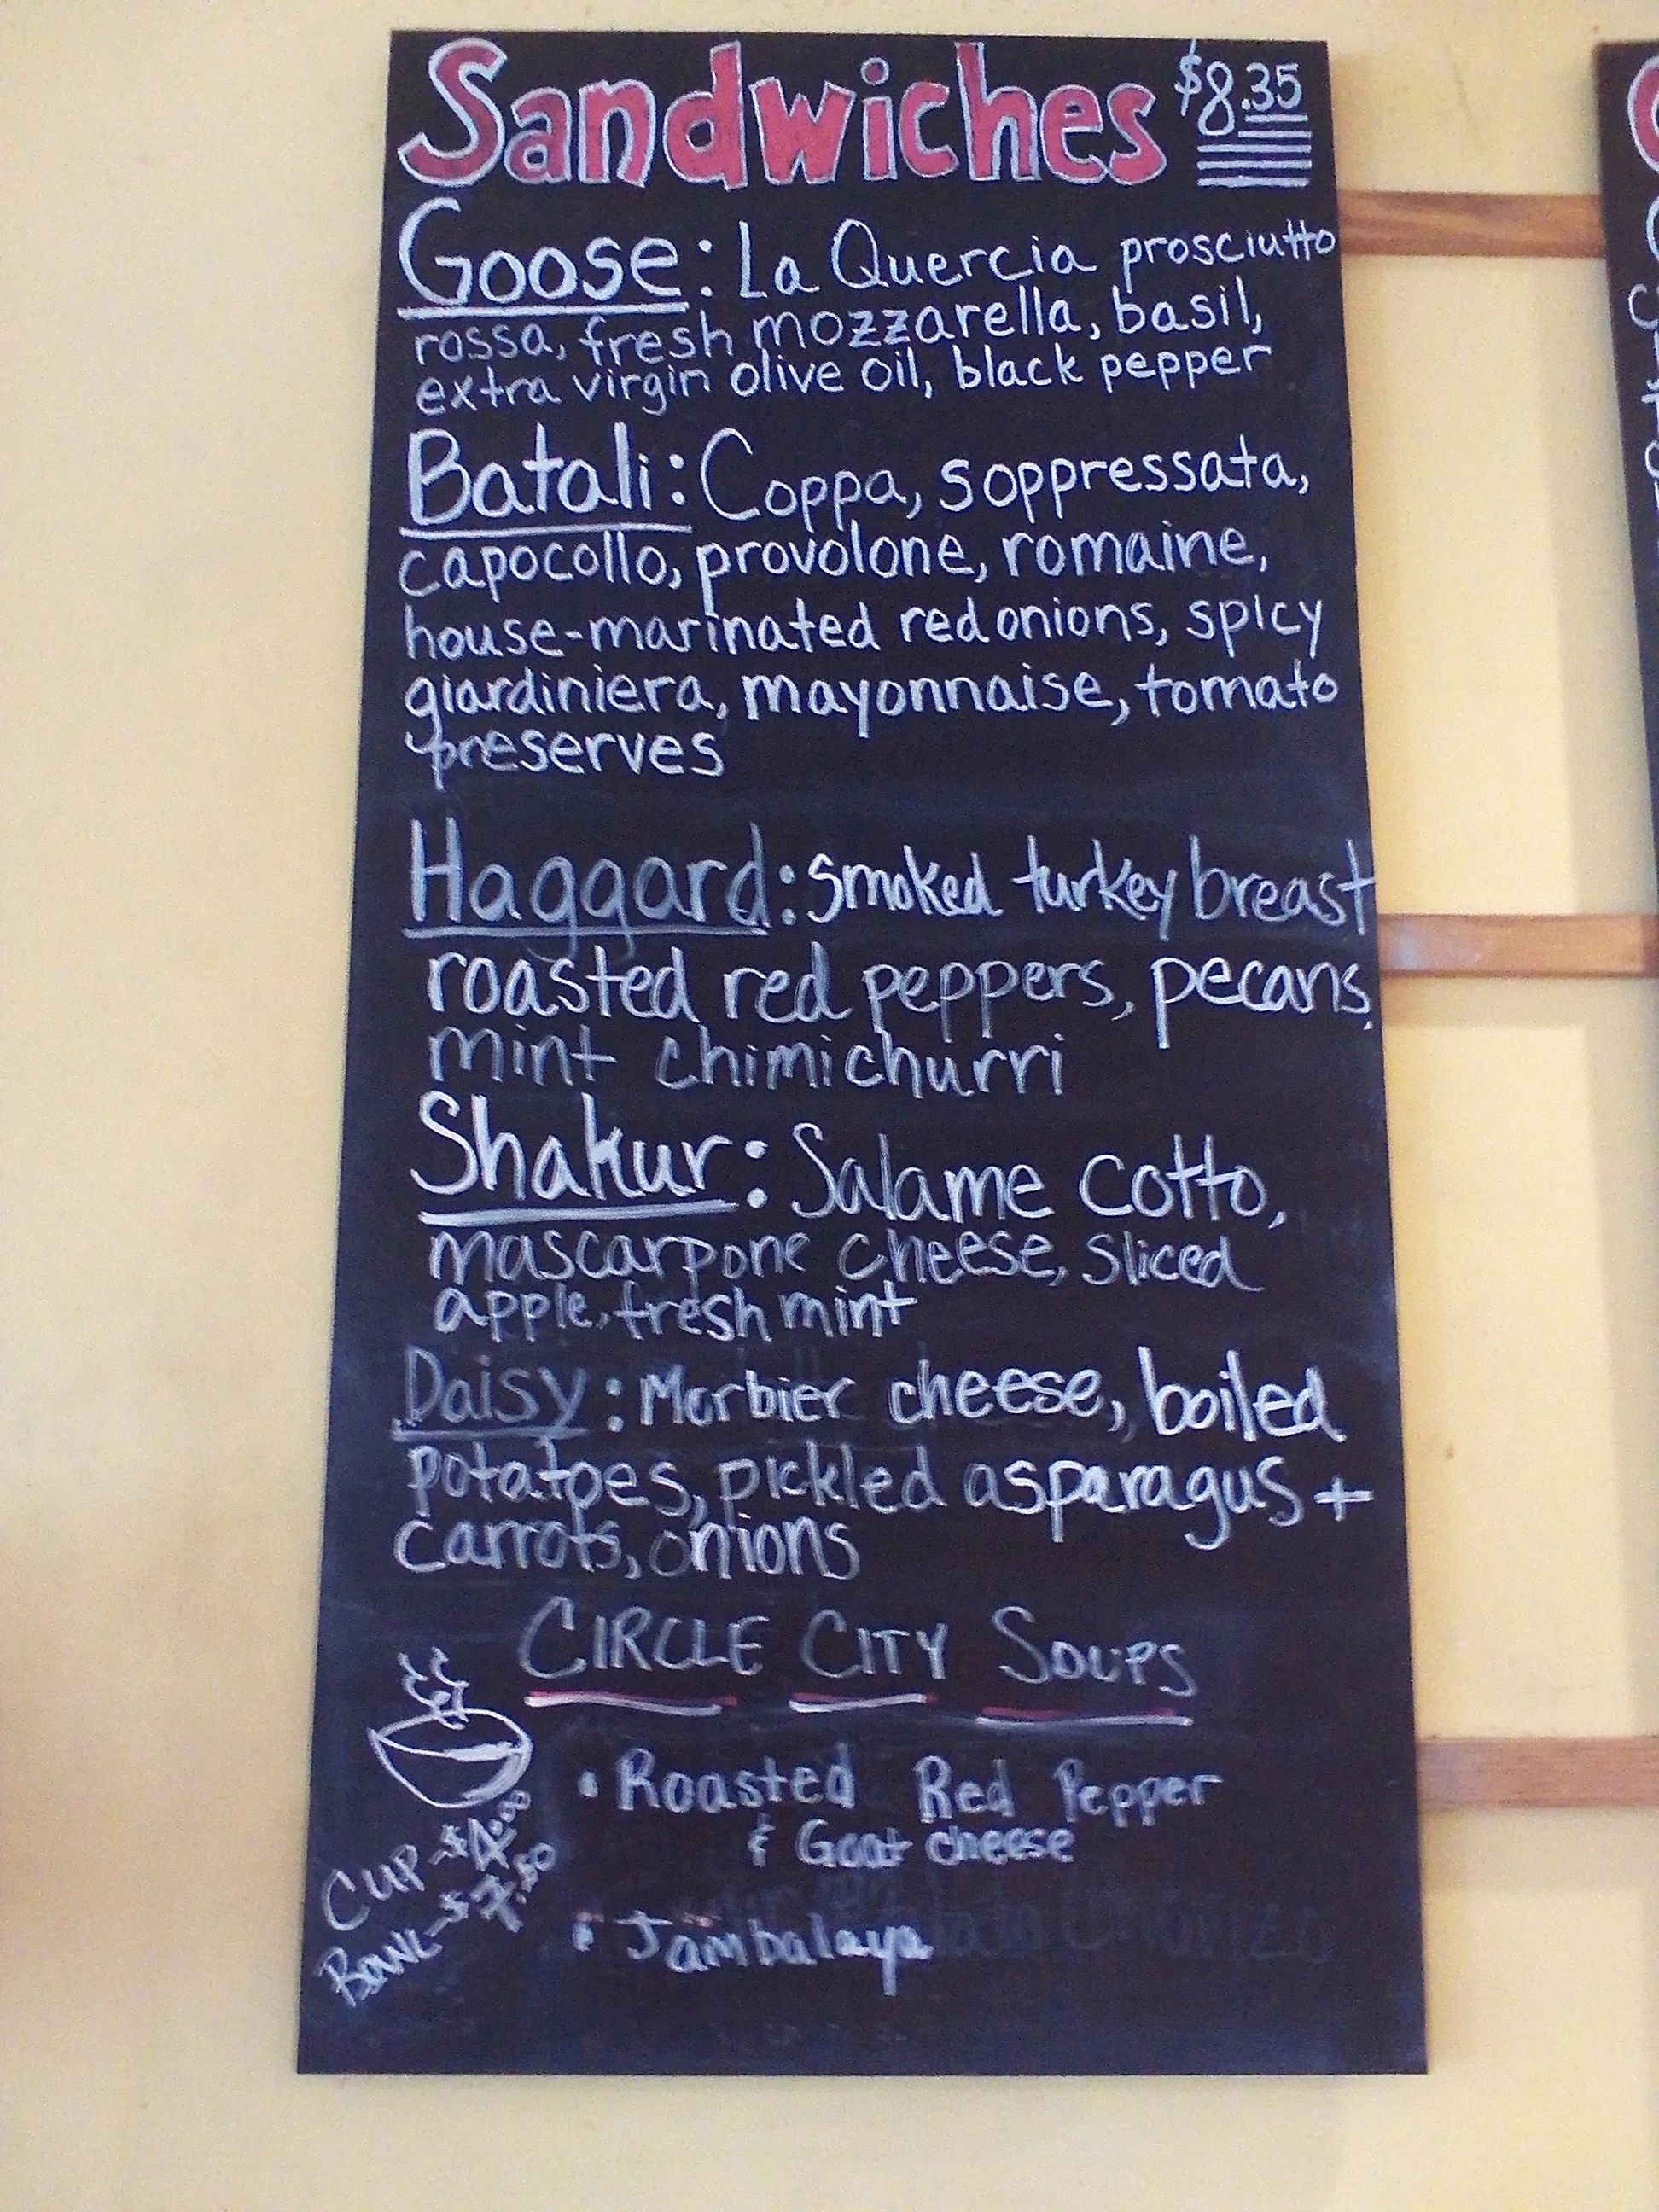 Sandwiches $8.35
Goose: La Quercia prosciutto
rossa, fresh mozzarella, basil,
extra virgin olive oil, black pepper
Batali: Coppa, soppressata,
capocollo, provolone, romaine,
house-marinated red onions, spicy
giardiniera, mayonnaise, tomato
preserves
Haggard: smoked turkey breast
roasted red peppers, pecans,
mint chimichurri
Shakur: Salame cotto,
mascarpone cheese, sliced
apple, fresh mint
Daisy: Morbier cheese, boiled
potatoes, pickled asparagus +
carrots, onions
CIRCLE CITY SOUPS
• Roasted Red Pepper
& Goat cheese
CUP-$4.00
BOWL-$7.50
• Jambalaya